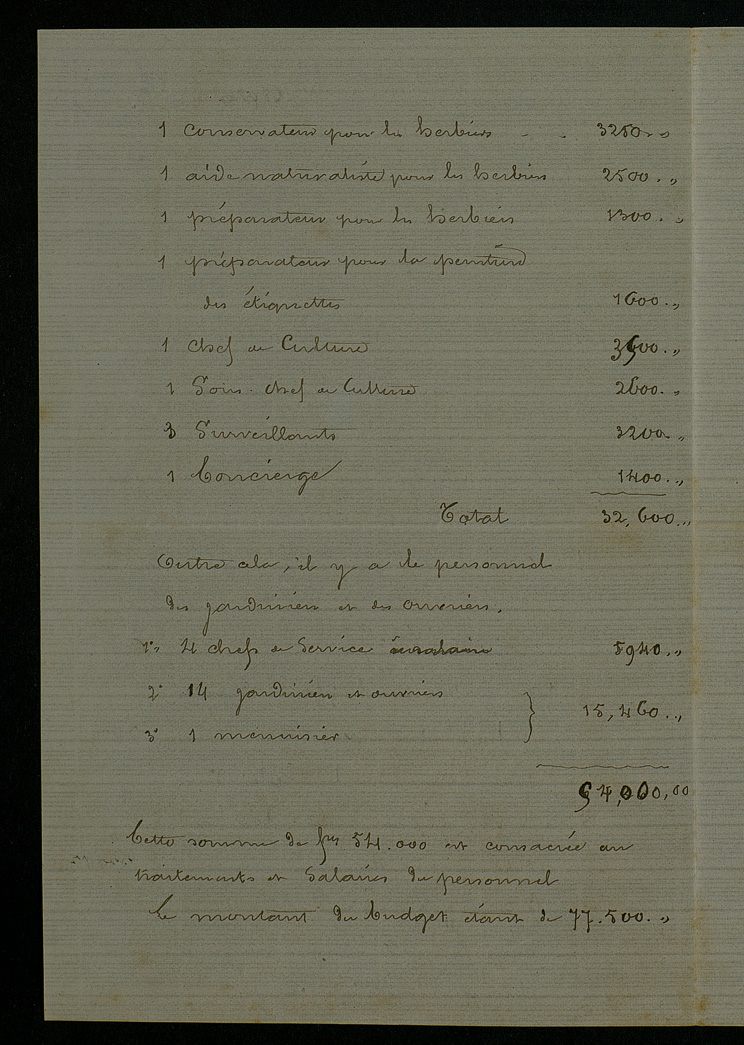 1 Conservateur pour les herbiers - - 3250 . „
1 aide naturaliste pour les herbiers 2500 . „
1 préparateur pour les herbiers 1300 . „
1 préparateur pour la peinture
des étiquettes 1600 . „
1 chef de Culture 3500 . „
1 Sous-chef de Culture 2600 . „
3 Surveillants 3200 . „
1 Concierge 1400 . „
Total 32,600 . „
Outre cela, il y a le personnel
des jardiniers et des ouvriers.
1° 4 chefs de Service 5940 . „
2° 14 jardiniers et ouvriers
15,460 . „
3° 1 menuisier
54,000,00
Cette somme de frs 54.000 est consacrée au
traitements et Salaires du personnel
le montant du budget étant de 77.500 . „